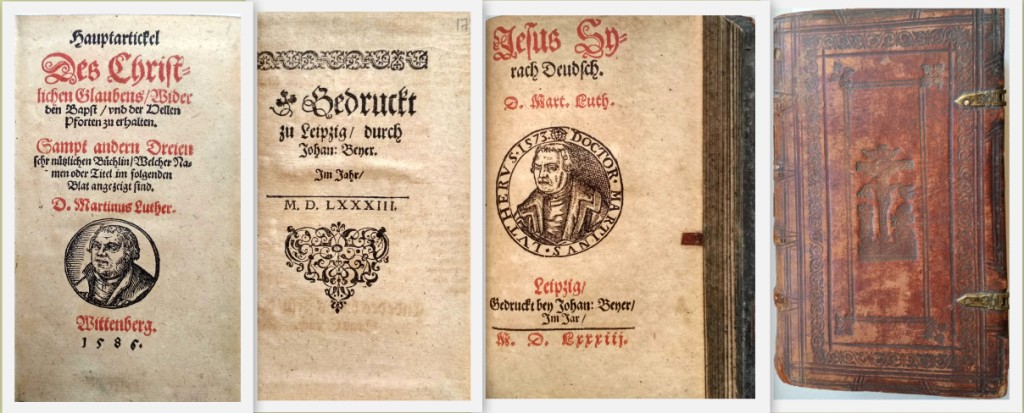 Hauptartickel
Des Christ=
lichen Glaubens/Wider
den Bapst / vnd der Hellen
Pforten zu erhalten.
Sampt andern Dreien
sehr nützlichen Büchlin/Welcher Na=
men oder Titel im folgenden
Blat angezeigt sind.
D. Martinus Luther.
Wittenberg.
1586.
Gedruckt
zu Leipzig/ durch
Johan: Beyer.
Im Jahr/
M. D. LXXXIII.
Jesus Sy=
rach Deudsch.
D. Mart. Luth.
DOCTOR · MARTINVS · LVTHERVS · 1573
Leipzig/
Gedruckt bey Johan: Beyer/
Im Jar/
M. D. Lxxxiij.